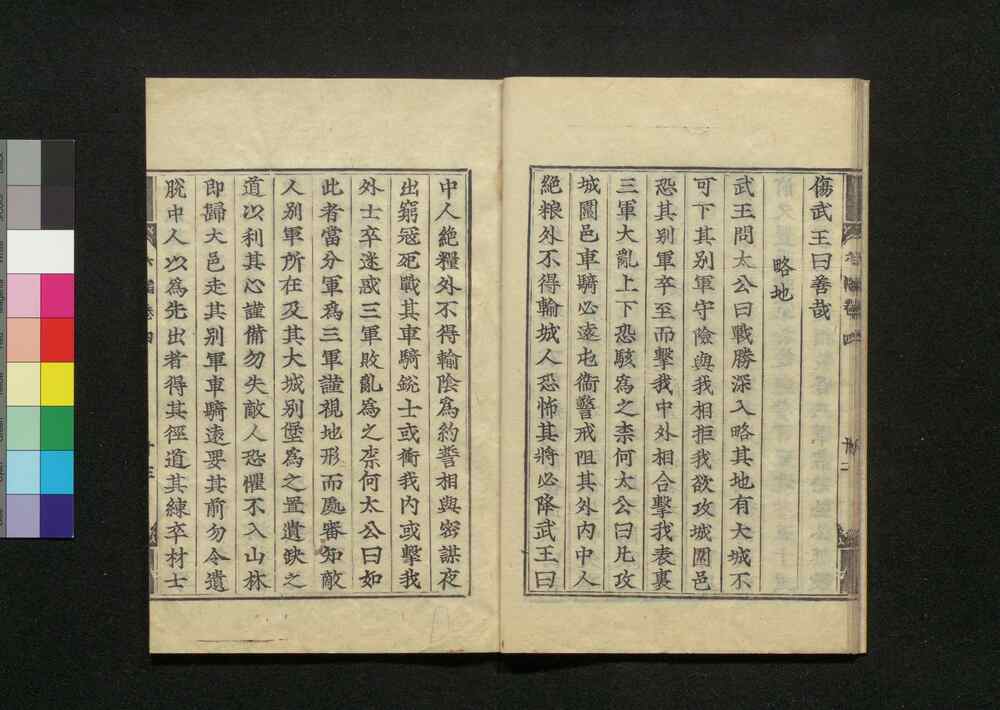 傷武王曰善哉
略地
武王問太公曰戰勝深入略其地有大城不
可下其別軍守險與我相拒我欲攻城圍邑
恐其別軍卒至而擊我中外相合擊我表裏
三軍大亂上下恐駭爲之柰何太公曰凡攻
城圍邑車騎必遠屯衛警戒阻其外內中人
絶粮外不得輸城人恐怖其將必降武王曰
中人絶糧外不得輸陰爲約誓相與密謀夜
出窮冦死戰其車騎銳士或衝我內或擊我
外士卒迷惑三軍敗亂爲之柰何太公曰如
此者當分軍爲三軍謹視地形而處審知敵
人別軍所在及其大城別堡爲之置遺缺之
道以利其心謹備勿失敵人恐懼不入山林
即歸大邑走其別軍車騎遠要其前勿令遺
脫中人以爲先出者得其徑道其練卒材士